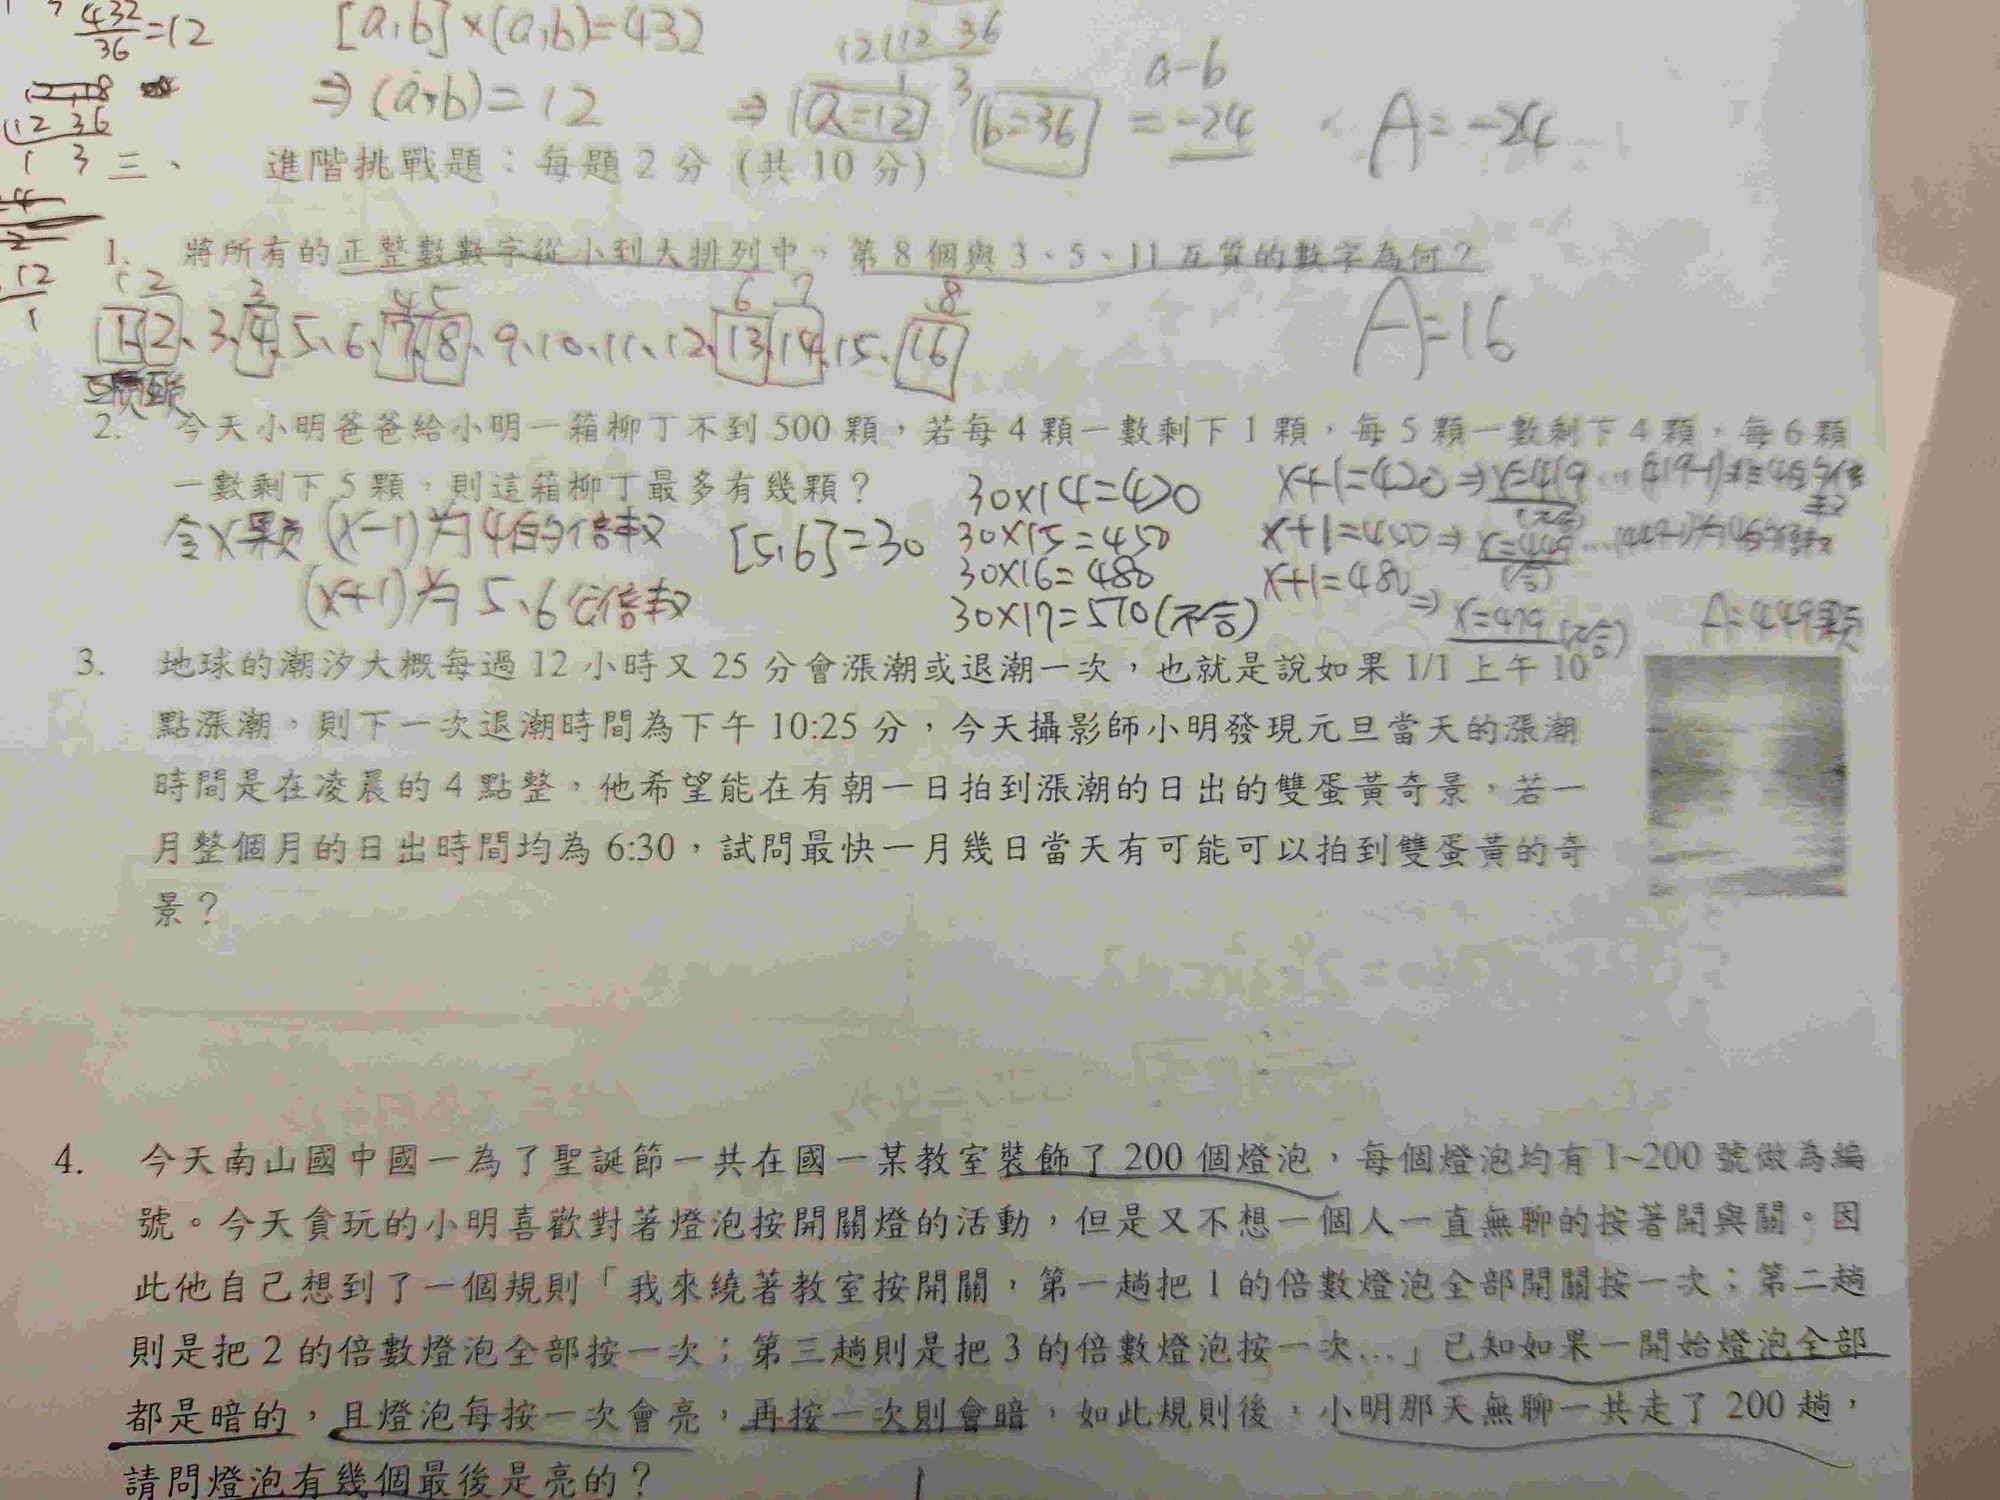 432/36=12
[a,b]×(a,b)=432
12 | 12 36
1 3
⇒ (a,b)=12 ⇒ a=12 b=36 a-b = -24 A=-24
12 36
1 3
三、 進階挑戰題：每題2分（共10分）
1. 將所有的正整數數字從小到大排列中，第8個與3、5、11互質的數字為何？
1 2 3 4 5 6 7 8
1、2、3、4、5、6、7、8、9、10、11、12、13、14、15、16 A=16
2. 今天小明爸爸給小明一箱柳丁不到500顆，若每4顆一數剩下1顆，每5顆一數剩下4顆，每6顆
一數剩下5顆，則這箱柳丁最多有幾顆？ 30×14=420 x+1=420⇒x=419
令x顆 (x-1)為4的倍數 [5,6]=30 30×15=450 x+1=450⇒x=449
30×16=480 x+1=480⇒x=479(不合)
(x+1)為5、6公倍數 30×17=570(不合) A=449顆
3. 地球的潮汐大概每過12小時又25分會漲潮或退潮一次，也就是說如果1/1上午10
點漲潮，則下一次退潮時間為下午10:25分，今天攝影師小明發現元旦當天的漲潮
時間是在凌晨的4點整，他希望能在有朝一日拍到漲潮的日出的雙蛋黃奇景，若一
月整個月的日出時間均為6:30，試問最快一月幾日當天有可能可以拍到雙蛋黃的奇
景？
4. 今天南山國中國一為了聖誕節一共在國一某教室裝飾了200個燈泡，每個燈泡均有1~200號做為編
號。今天貪玩的小明喜歡對著燈泡按開關燈的活動，但是又不想一個人一直無聊的按著開與關。因
此他自己想到了一個規則「我來繞著教室按開關，第一趟把1的倍數燈泡全部開關按一次；第二趟
則是把2的倍數燈泡全部按一次；第三趟則是把3的倍數燈泡按一次…」已知如果一開始燈泡全部
都是暗的，且燈泡每按一次會亮，再按一次則會暗，如此規則後，小明那天無聊一共走了200趟，
請問燈泡有幾個最後是亮的？